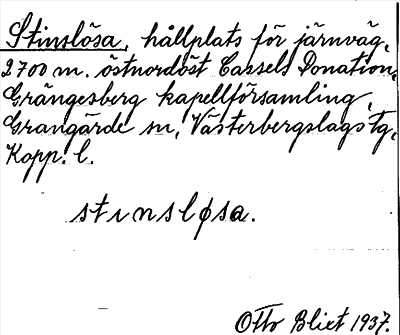 Stinslösa, hållplats för järnväg,
2700 m. östnordöst Cassels Donation,
Grängesberg kapellförsamling,
Grangärde sn, Västerbergslags tg,
Kopp. l.
stinsløsa.
Otto Blixt 1937.